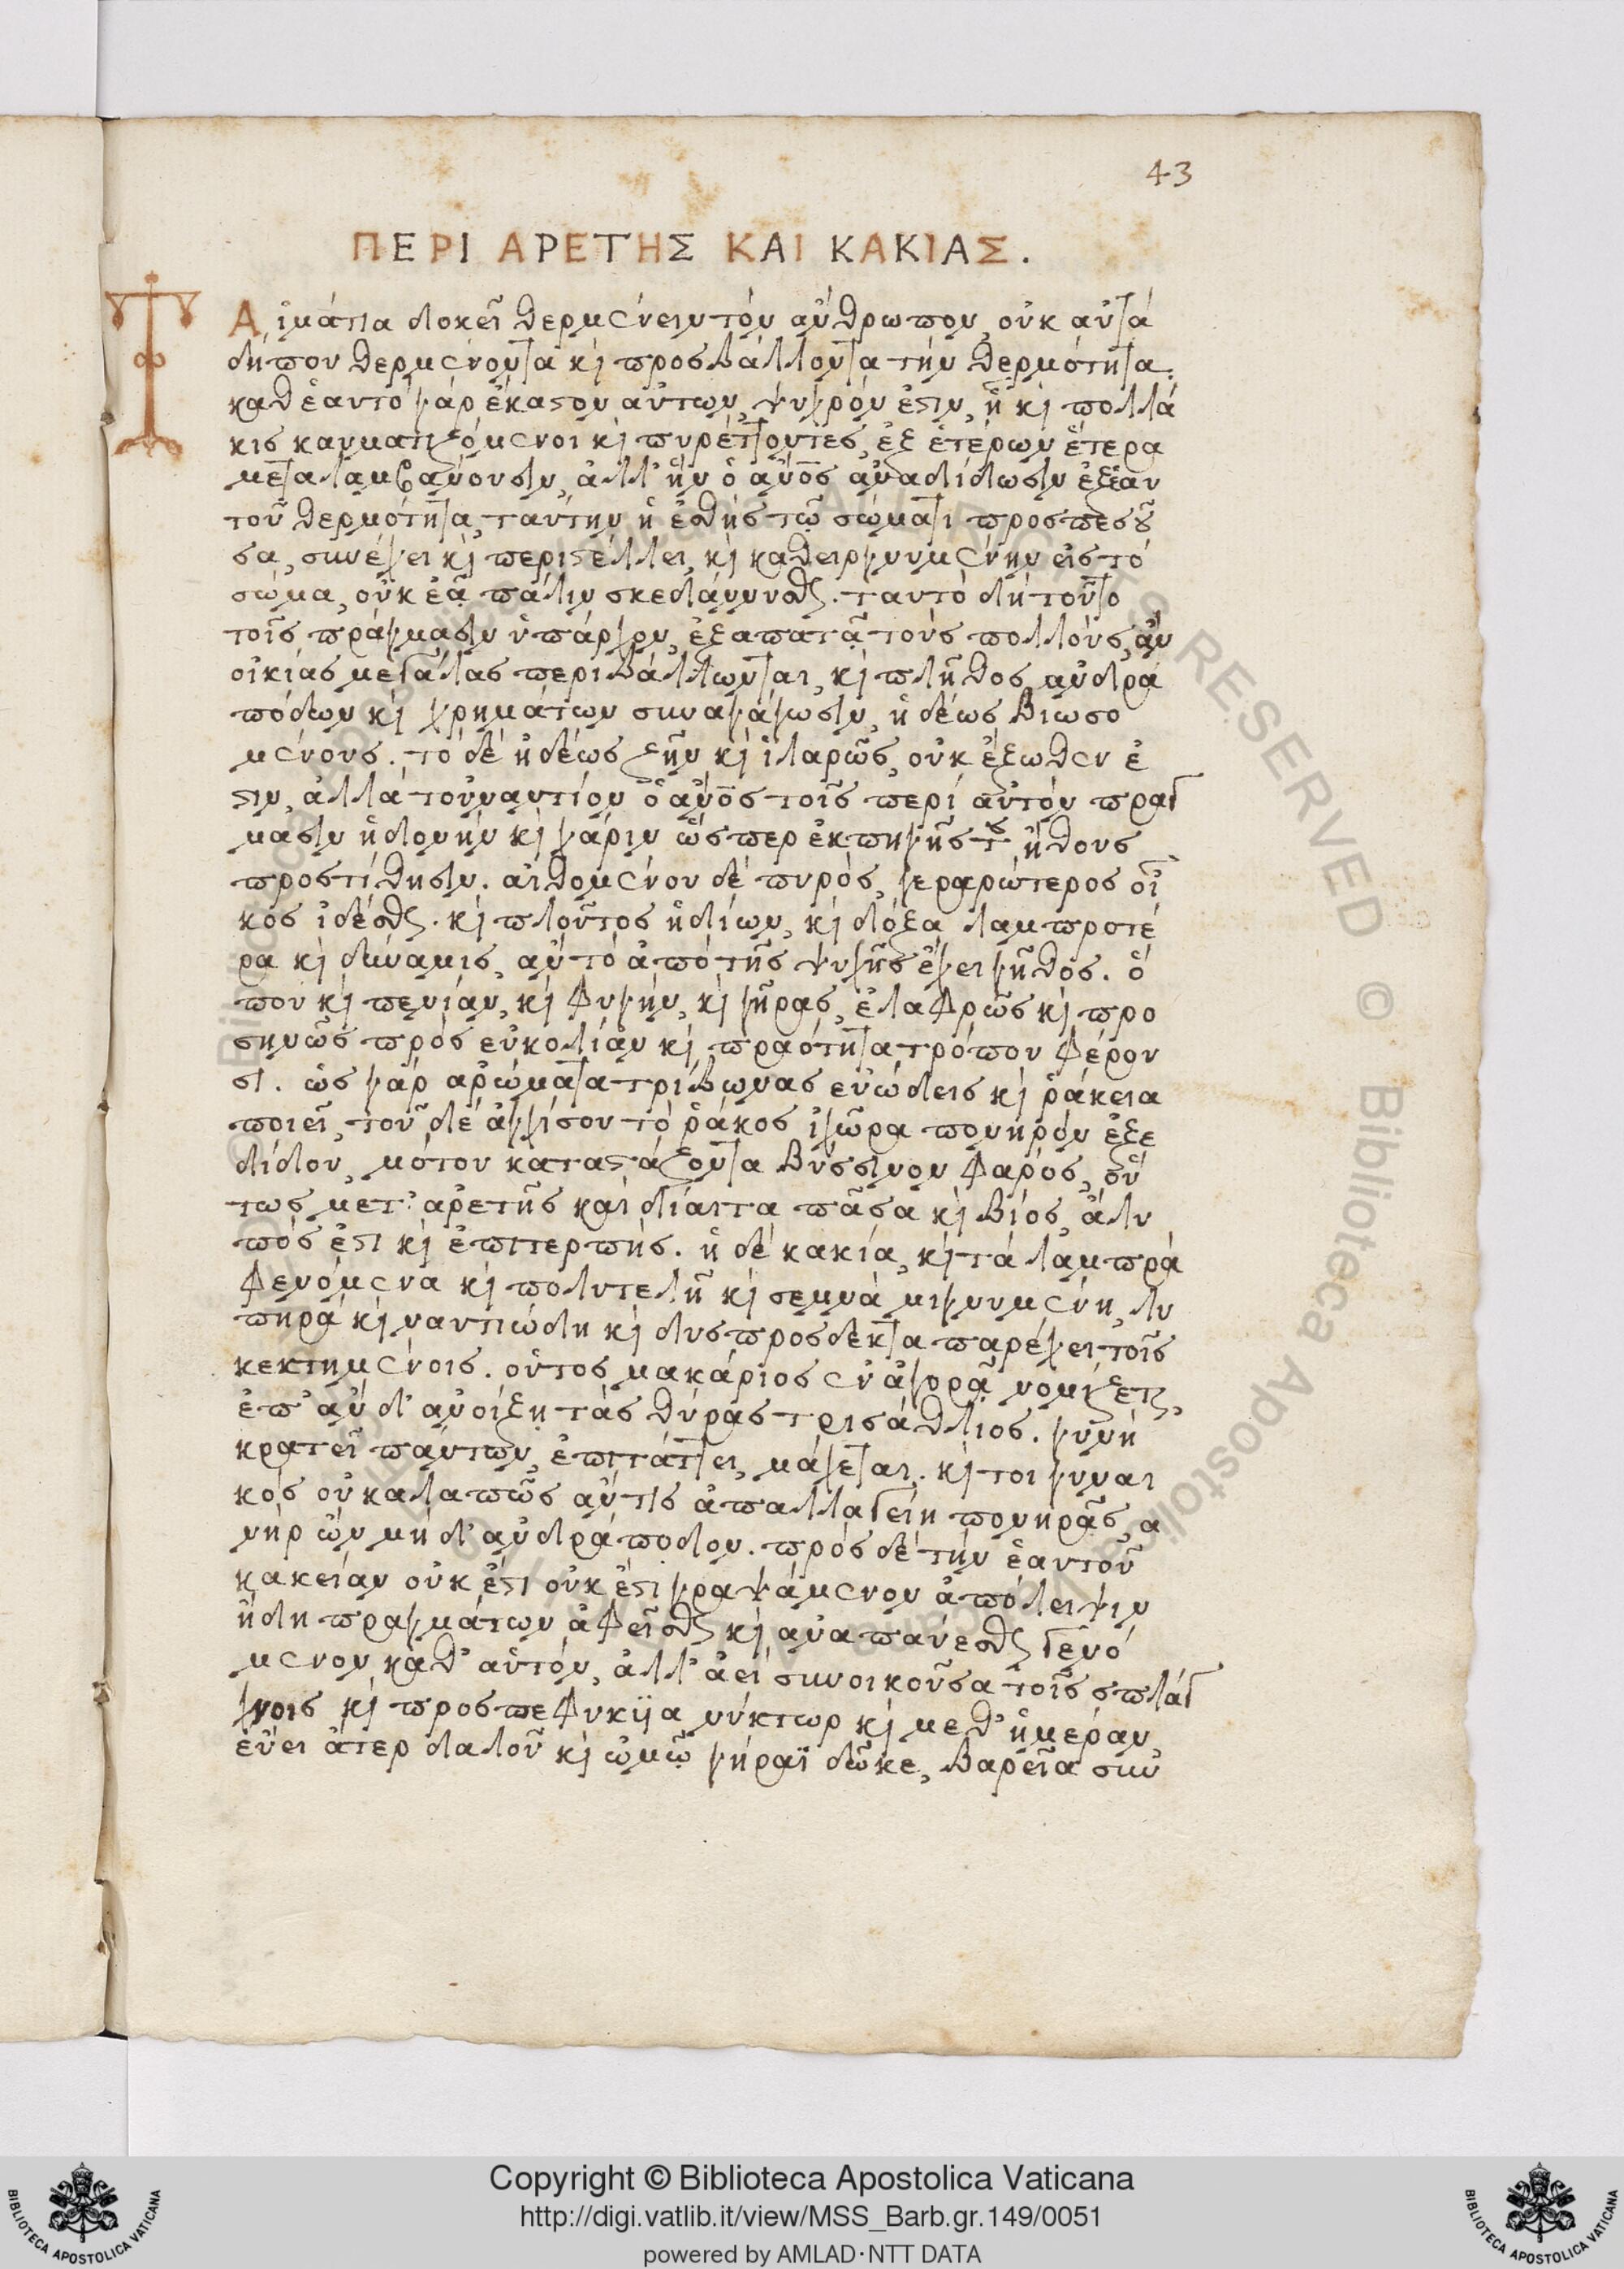 43
ΠΕΡΙ ΑΡΕΤΗΣ ΚΑΙ ΚΑΚΙΑΣ.
Τ Α ἱμάτια δοκεῖ θερμαίνειν τὸν ἄνθρωπον, οὐκ αὐτά
δήπου θερμαίνοντα κὶ προσβάλλοντα τὴν θερμότητα.
καθ ἑαυτὸ γὰρ ἕκαστον αὐτων, ψυχρόν ἐστιν, ᾗ κὶ πολλά
κις καυματιζόμενοι κὶ πυρέττοντες, ἐξ ἑτέρων ἕτερα
μεταλαμβάνουσιν, ἀλλ' ἣν ὁ ἄνος ἀναδίδωσιν ἐξ ἑαυ
τοῦ θερμότητα, ταύτην ἡ ἐσθὴς τῷ σώματι προσπεσοῦ
σα, συνέχει κὶ περιστέλλει, κὶ καθειργνυμένην εἰς τὸ
σῶμα, οὐκ ἐᾷ πάλιν σκεδάννυσθαι. ταυτὸ δὴ τοῦτο
τοῖς πράγμασιν ὑπάρχον, ἐξαπατᾷ τοὺς πολλοὺς, ἂν
οἰκίας μεγάλας περιβάλλωνται, κὶ πλῆθος ἀνδρα
πόδων κὶ χρημάτων συναγάγωσιν, ἡδέως βιωσο
μένους. τὸ δὲ ἡδέως ζῆν κὶ ἱλαρῶς, οὐκ ἔξωθεν ἐ
στιν, ἀλλὰ τοὐναντίον ὁ ἄνος τοῖς περὶ αὐτὸν πράγ
μασιν ἡδονὴν κὶ χάριν ὥσπερ ἐκ πηγῆς τοῦ ἤθους
προστίθησιν. αἰθομένου δὲ πυρὸς, γεραρώτερος οἶ
κος ἰδέσθαι. κὶ πλοῦτος ἡδίων, κὶ δόξα λαμπροτέ
ρα κὶ δύναμις, αὐτὸ ἀπὸ τῆς ψυχῆς ἔχει γῆθος. ὅ
που κὶ πενίαν, κὶ φυγὴν, κὶ γῆρας, ἐλαφρῶς κὶ προ
σηνῶς πρὸς εὐκολίαν κὶ πραότητα τρόπου φέρου
σι. ὡς γὰρ ἀρώματα τρίβωνας εὐώδεις κὶ ῥάκεια
ποιεῖ, τοῦ δὲ ἀγχίσου τὸ ῥάκος ἰχῶρα πονηρὸν ἐξε
δίδου, μότου καταστάζοντα βύσσινον φάρος, οὕ
τως μετ' ἀρετῆς καὶ δίαιτα πᾶσα κὶ βίος, ἄλυ
πός ἐστι κὶ ἐπιτερπής. ἡ δὲ κακία, κὶ τὰ λαμπρὰ
φενόμενα κὶ πολυτελῆ κὶ σεμνὰ μιγνυμένη, λυ
πηρὰ κὶ ναυτιώδη κὶ δυσπρόσδεκτα παρέχει τοῖς
κεκτημένοις. οὗτος μακάριος ἐν ἀγορᾷ νομίζεται,
ἐπ' ἂν δ' ἀνοίξη τὰς θύρας τρισάθλιος. γυνὴ
κρατεῖ πάντων, ἐπιτάττει, μάχεται. κὶ τοι γυναι
κὸς οὐ καλαπῶς ἄν τις ἀπαλλαγείη πονηρᾶς, ἀ
νὴρ ὢν μὴ δ' ἀνδράποδον. πρὸς δὲ τὴν ἑαυτοῦ
κακείαν οὐκ ἔστι οὐκ ἔστι γραψάμενον ἀπόλειψιν
ἤδη πραγμάτων ἀφεῖσθαι κὶ ἀναπαύεσθαι γενό
μενον καθ' αὑτὸν, ἀλλ' ἀεὶ συνοικοῦσα τοῖς σπλάγ
χνοις κὶ προσπεφυκῖια νύκτωρ κὶ μεθ' ἡμέραν,
εὕει ἄτερ δαλοῦ κὶ ὠμῷ γήραϊ δῶκε, βαρεῖα συν
Copyright © Biblioteca Apostolica Vaticana
http://digi.vatlib.it/view/MSS_Barb.gr.149/0051
powered by AMLAD·NTT DATA